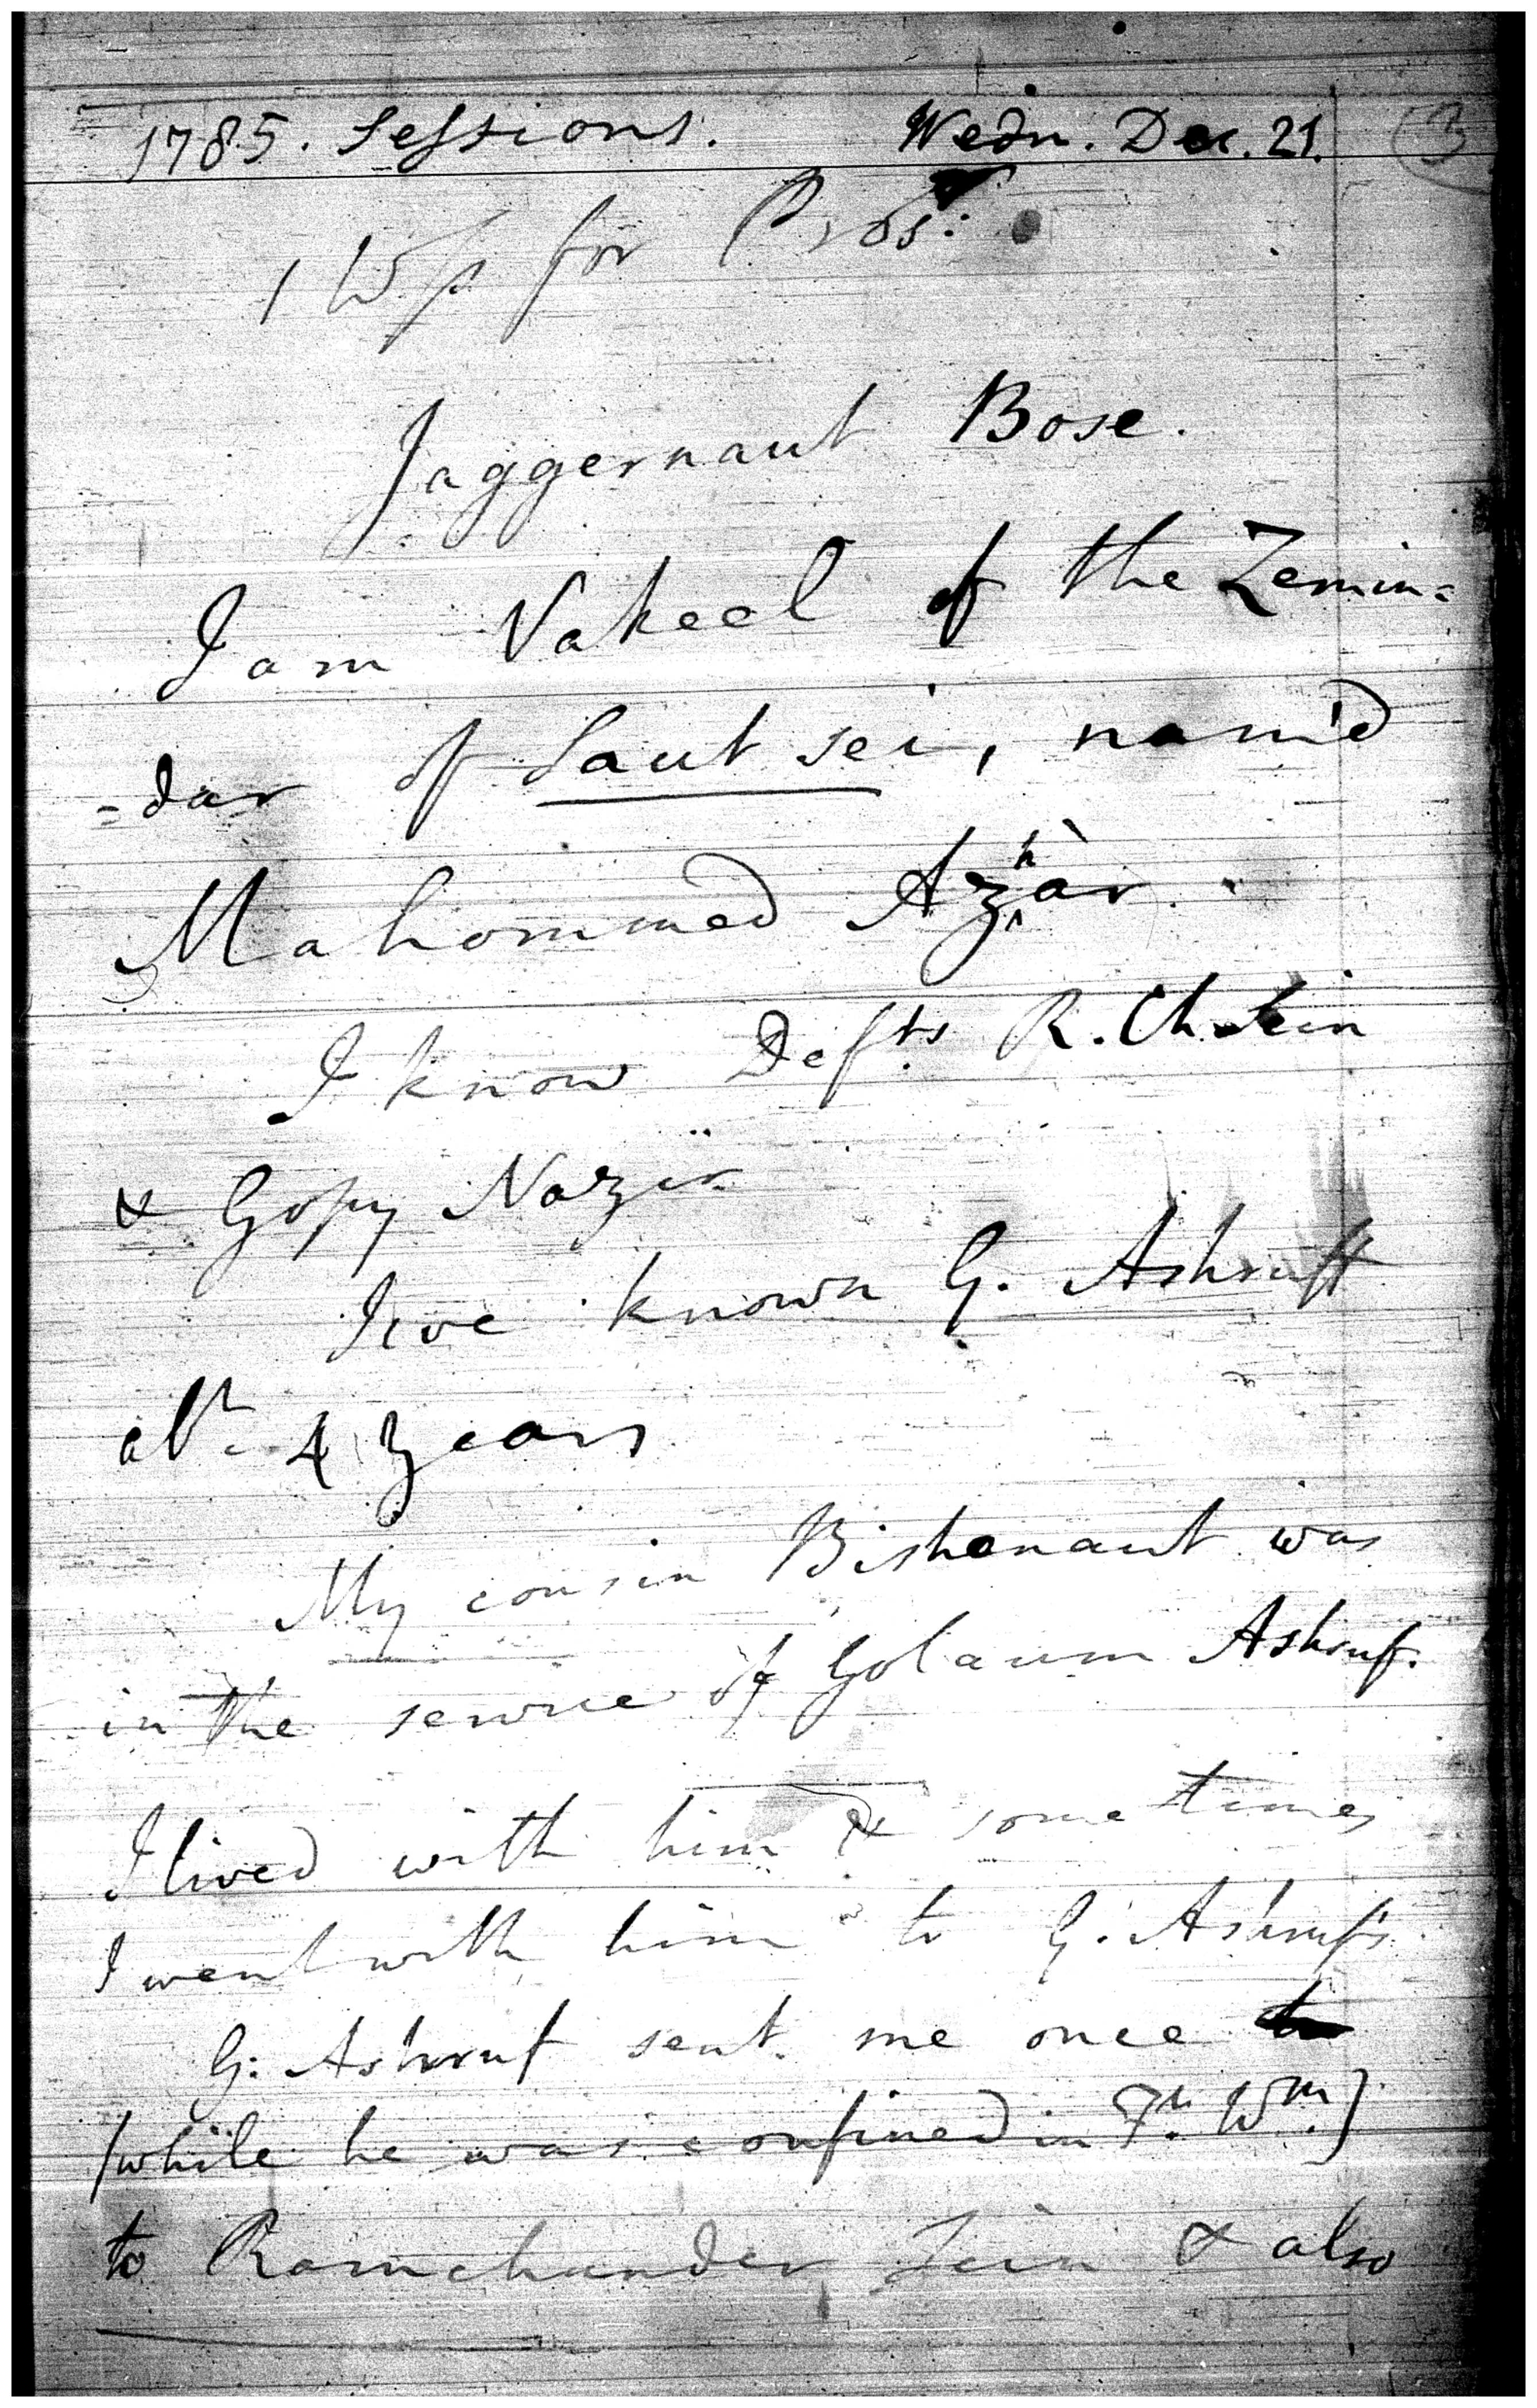 1785. Sessions. Wedn. Dec. 21. 3
1 Wss for Pros:
Jaggernaut Bose.
I am Vakeel of the Zemin=
=dar of Saut sei, nam'd
Mahommed Azhàr.
I know Defts R. Ch. Sein
& Gopy Nazir
I've known G. Ashruff
abt 4 years
My cousin Bishenaut was
in the service of Golaum Ashruf.
I lived with him & some times
I went with him to G. Ashruf's
G. Ashruf sent me once
(while he was confined in Ft. Wm.)
to Ramchunder Sein & also